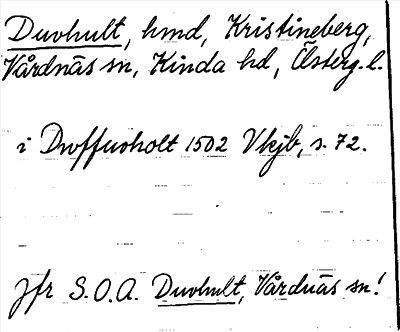 Duvhult, hmd, Kristineberg,
Vårdnäs sn, Kinda hd, Österg. l.
i Dwffuoholt 1502 Vkjb, s. 72.
jfr S.O.A. Duvhult, Vårdnäs sn!